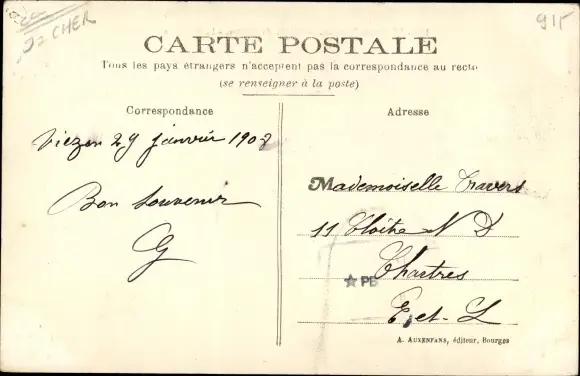 CHER
915
CARTE POSTALE
Tous les pays étrangers n'acceptent pas la correspondance au recto
(se renseigner à la poste)
Correspondance
Vierzon 29 janvier 1908
Bon Souvenir
G
Adresse
Mademoiselle Travers
11 Cloître N D
Chartres
★ PB
E. et. L
A. AUXENFANS, éditeur, Bourges